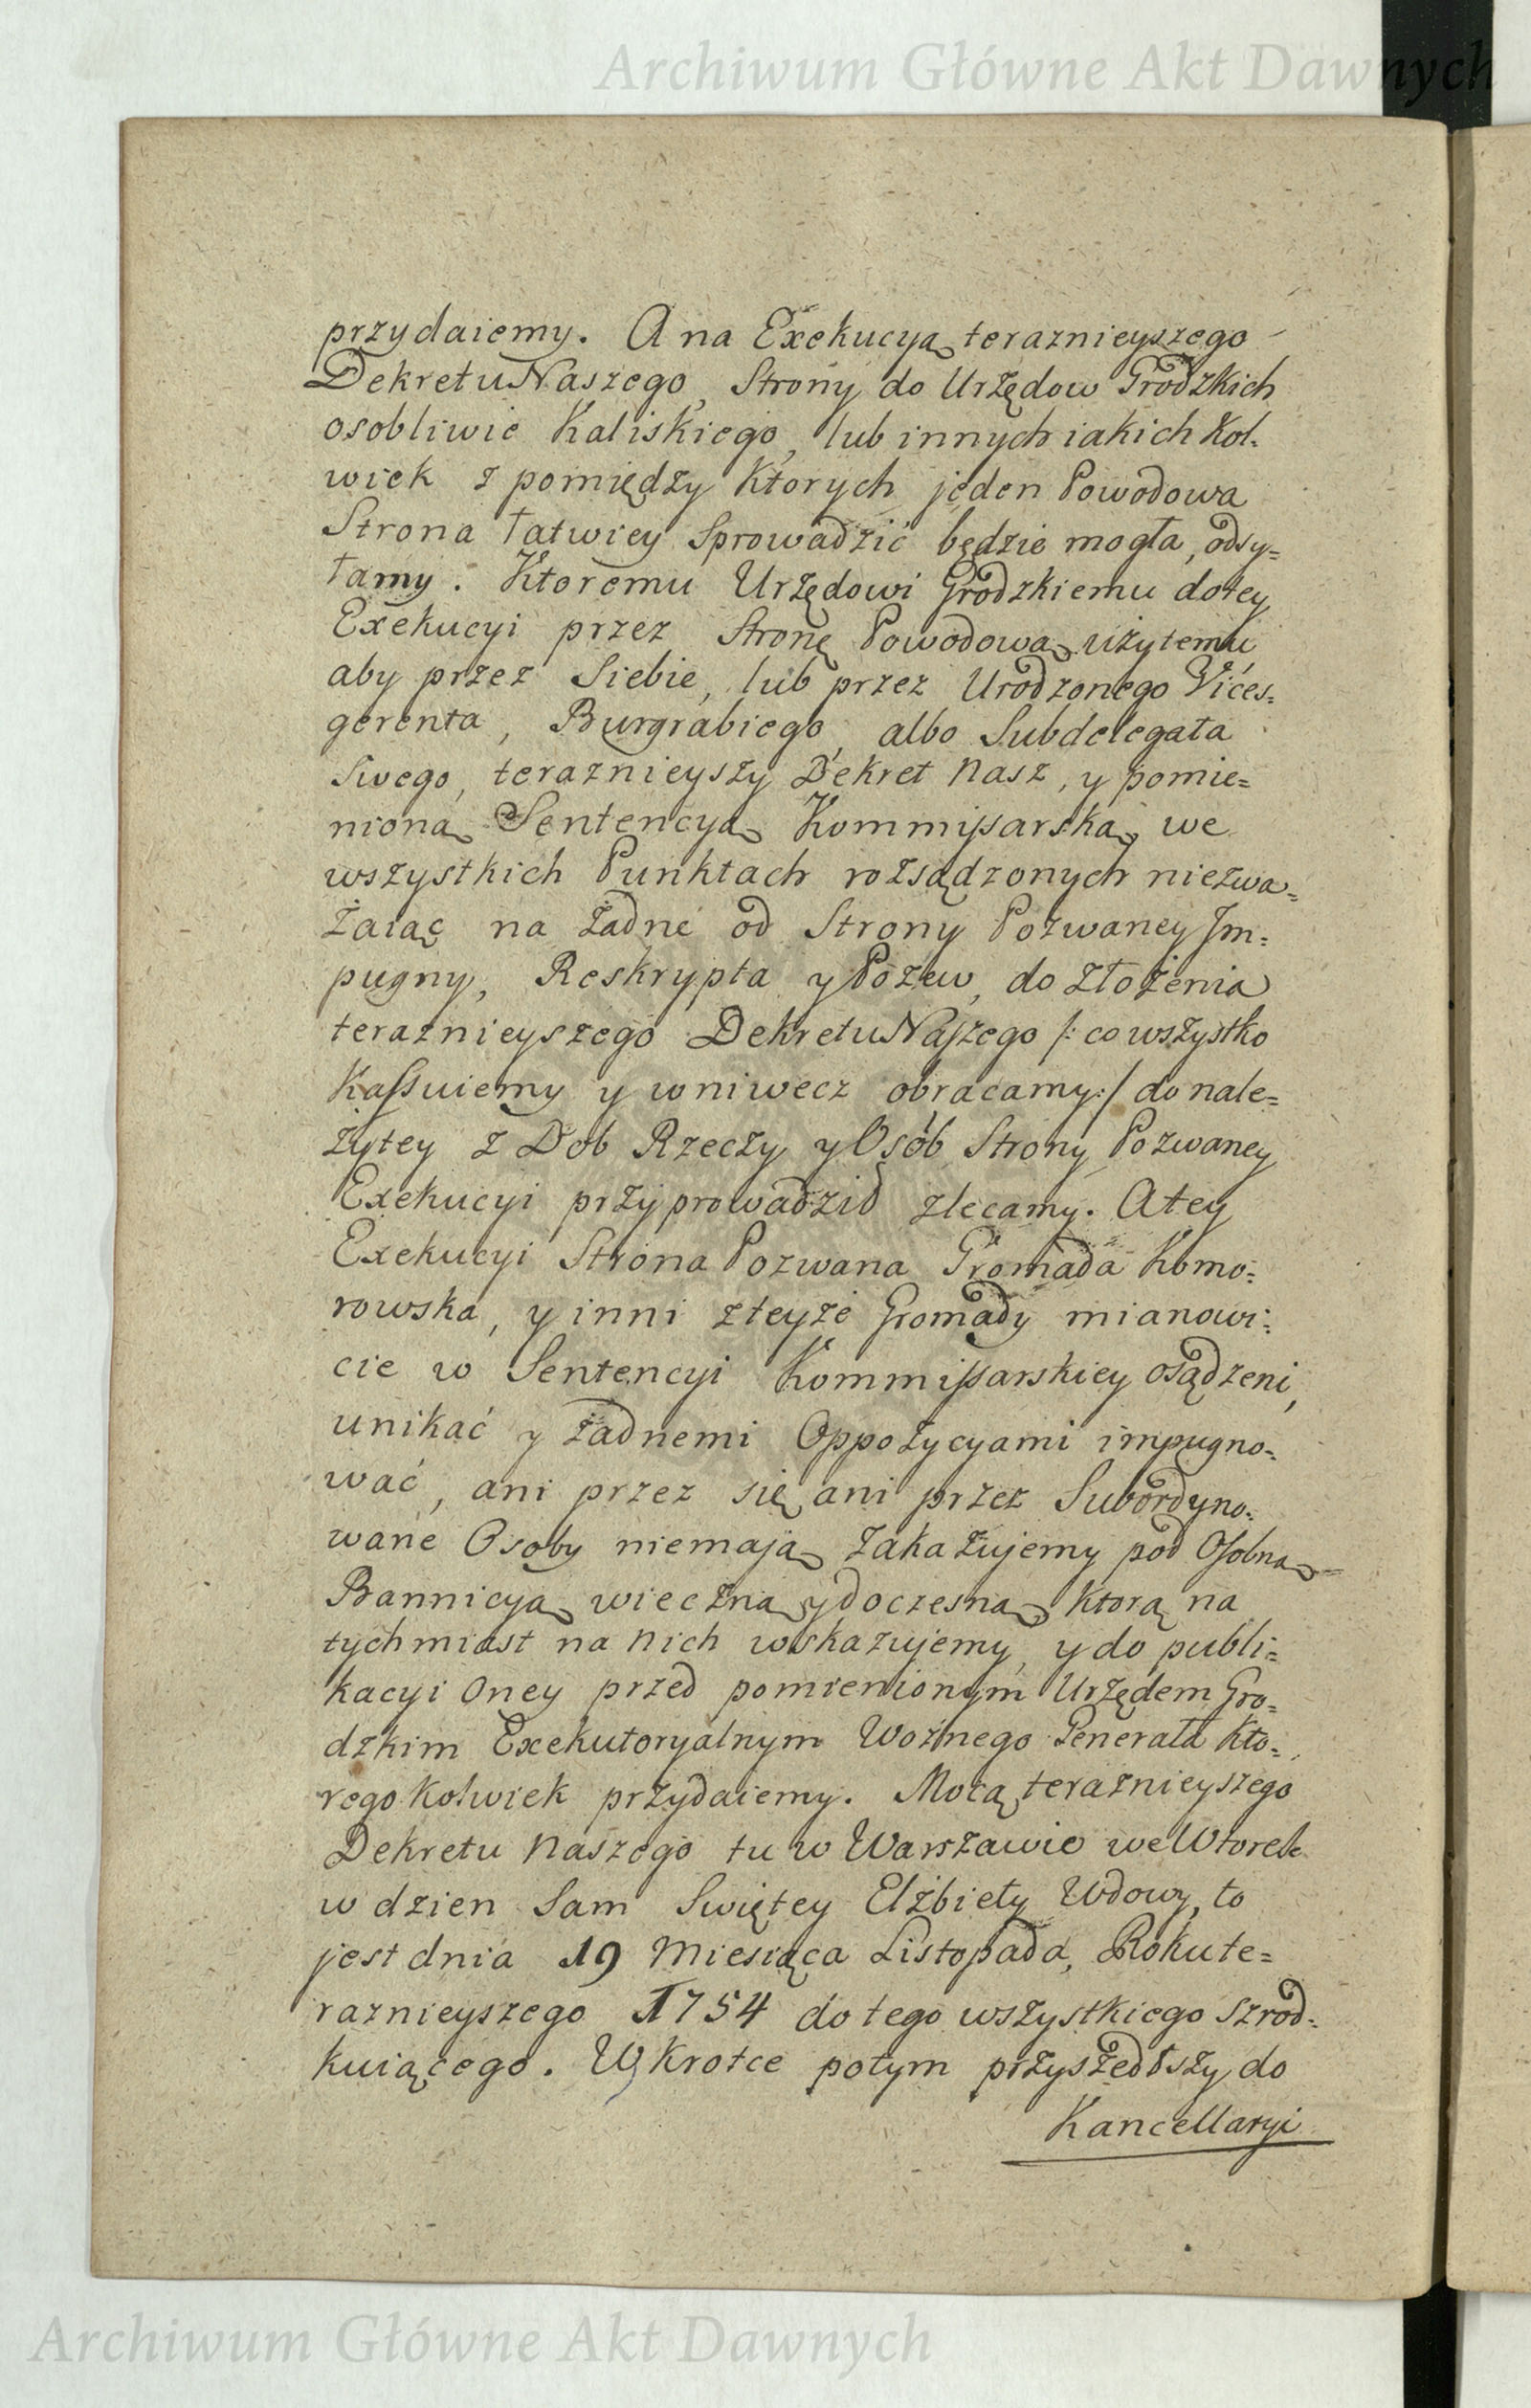 Archiwum Główne Akt Dawnych
przydaiemy. A na Exekucyą teraznieyszego
Dekretu Naszego, Strony do Urzędow Grodzkich
osobliwie Kaliskiego, lub innych iakich kol-
wiek z pomiędzy ktorych jeden Powodowa
Strona łatwiey sprowadzić będzie mogła, odsy=
łamy. Ktoremu Urzędowi Grodzkiemu do tey
Exekucyi przez Stronę Powodową użytemu
aby przez Siebie, lub przez Urodzonego Vices=
gerenta, Burgrabiego, albo Subdelegata
Swego, teraznieyszy Dekret Nasz, y pomie=
nioną Sentencyą Kommissarską, we
wszystkich Punktach rozsądzonych niezwa=
żaiąc na żadne od Strony Pozwaney Im=
pugny, Reskrypta y Pozew, do złożenia
teraznieyszego Dekretu Naszego /: co wszystko
Kassuiemy y wniwecz obracamy :/ do nale=
żytey z Dob Rzeczy y Osób Strony Pozwaney
Exekucyi przyprowadził zlecamy. A tey
Exekucyi Strona Pozwana Gromada Komo=
rowska, y inni z teyże Gromady mianowi=
cie w Sentencyi Kommissarskiey osądzeni,
unikać y żadnemi Oppozycyami impugno=
wać, ani przez się ani przez Subordyno=
wane Osoby niemają zakazujemy pod Osobną=
Bannicyą wieczną y doczesną, ktorą na
tychmiast na nich wskazujemy, y do publi=
kacyi oney przed pomienionym Urzędem Gro=
dzkim Exekutoryalnym Woźnego Generała kto=
regokolwiek przydaiemy. Mocą teraznieyszego
Dekretu Naszego tu w Warszawie we Wtorek
w dzien Sam Swiętey Elżbiety Wdowy, to
jest dnia 19 Miesiąca Listopada, Roku te=
raznieyszego 1754 do tego wszystkiego szrod=
kuiącego. W krotce potym przyszedłszy do
Kancellaryi
Archiwum Główne Akt Dawnych